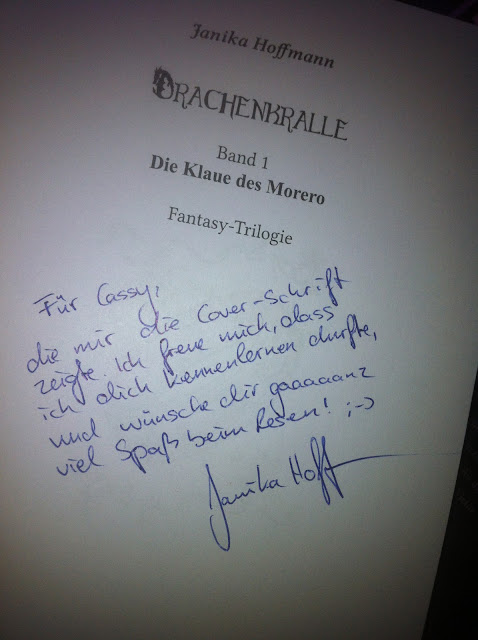 Janika Hoffmann
DRACHENKRALLE
Band 1
Die Klaue des Morero
Fantasy-Trilogie
Für Cassy,
die mir die Cover-Schrift
zeigte. Ich freue mich, dass
ich dich kennenlernen durfte,
und wünsche dir gaaaaanz
viel Spaß beim Lesen! ;-)
Janika Hoff